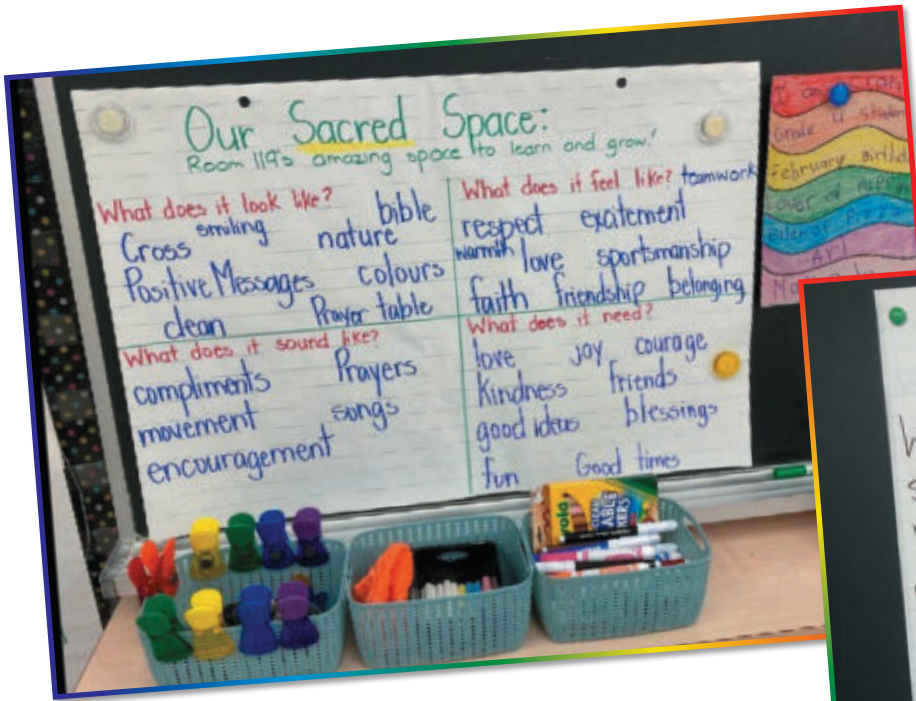 Our Sacred Space:
Room 119's amazing space to learn and grow!
What does it look like?
bible
smiling
Cross
nature
Positive Messages
colours
clean
Prayer table
What does it feel like?
teamwork
respect
excitement
warmth
love
sportsmanship
faith
friendship
belonging
What does it sound like?
compliments
Prayers
movement
songs
encouragement
What does it need?
love
joy
courage
Kindness
friends
good ideas
blessings
fun
Good times
I am
Grade 4
February
Lover of
Eater of Pizza
Art